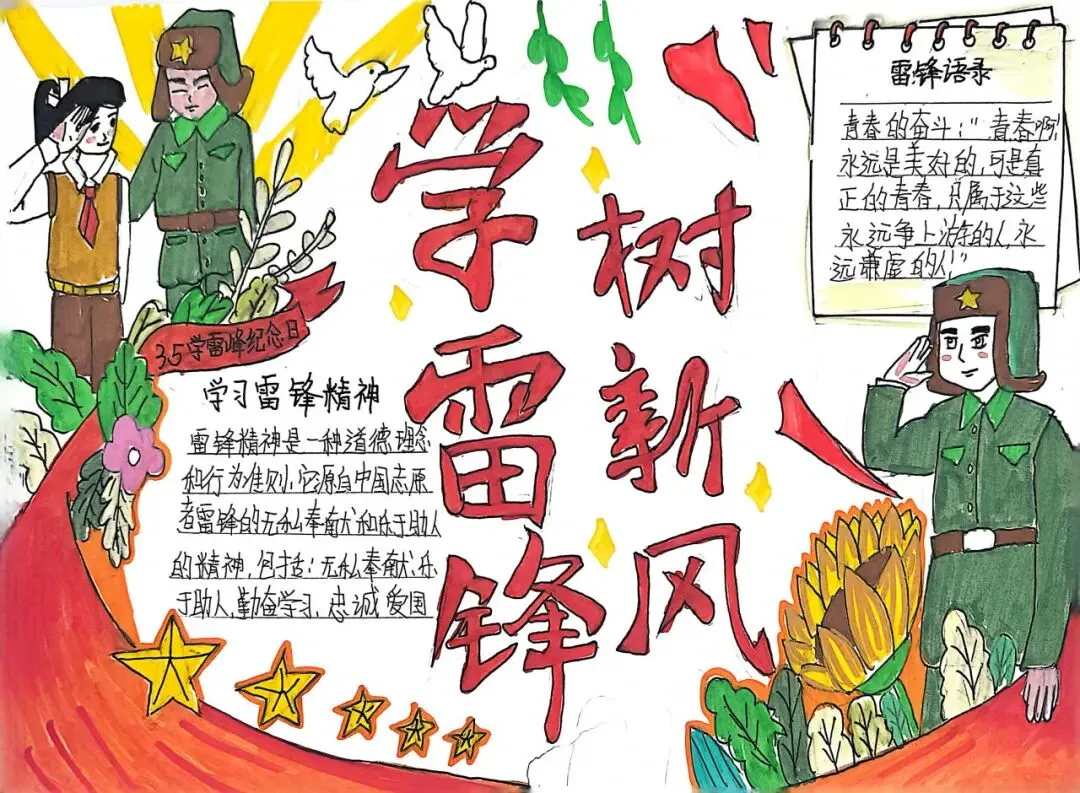 学雷锋
树新风
雷锋语录
青春的奋斗:"青春啊
永远是美好的,可是真
正的青春,只属于这些
永远争上游的人,永
远谦虚的人!"
3.5学雷峰纪念日
学习雷锋精神
雷锋精神是一种道德理念
和行为准则,它源自中国志愿
者雷锋的无私奉献和乐于助人
的精神,包括:无私奉献,乐
于助人,勤奋学习,忠诚爱国